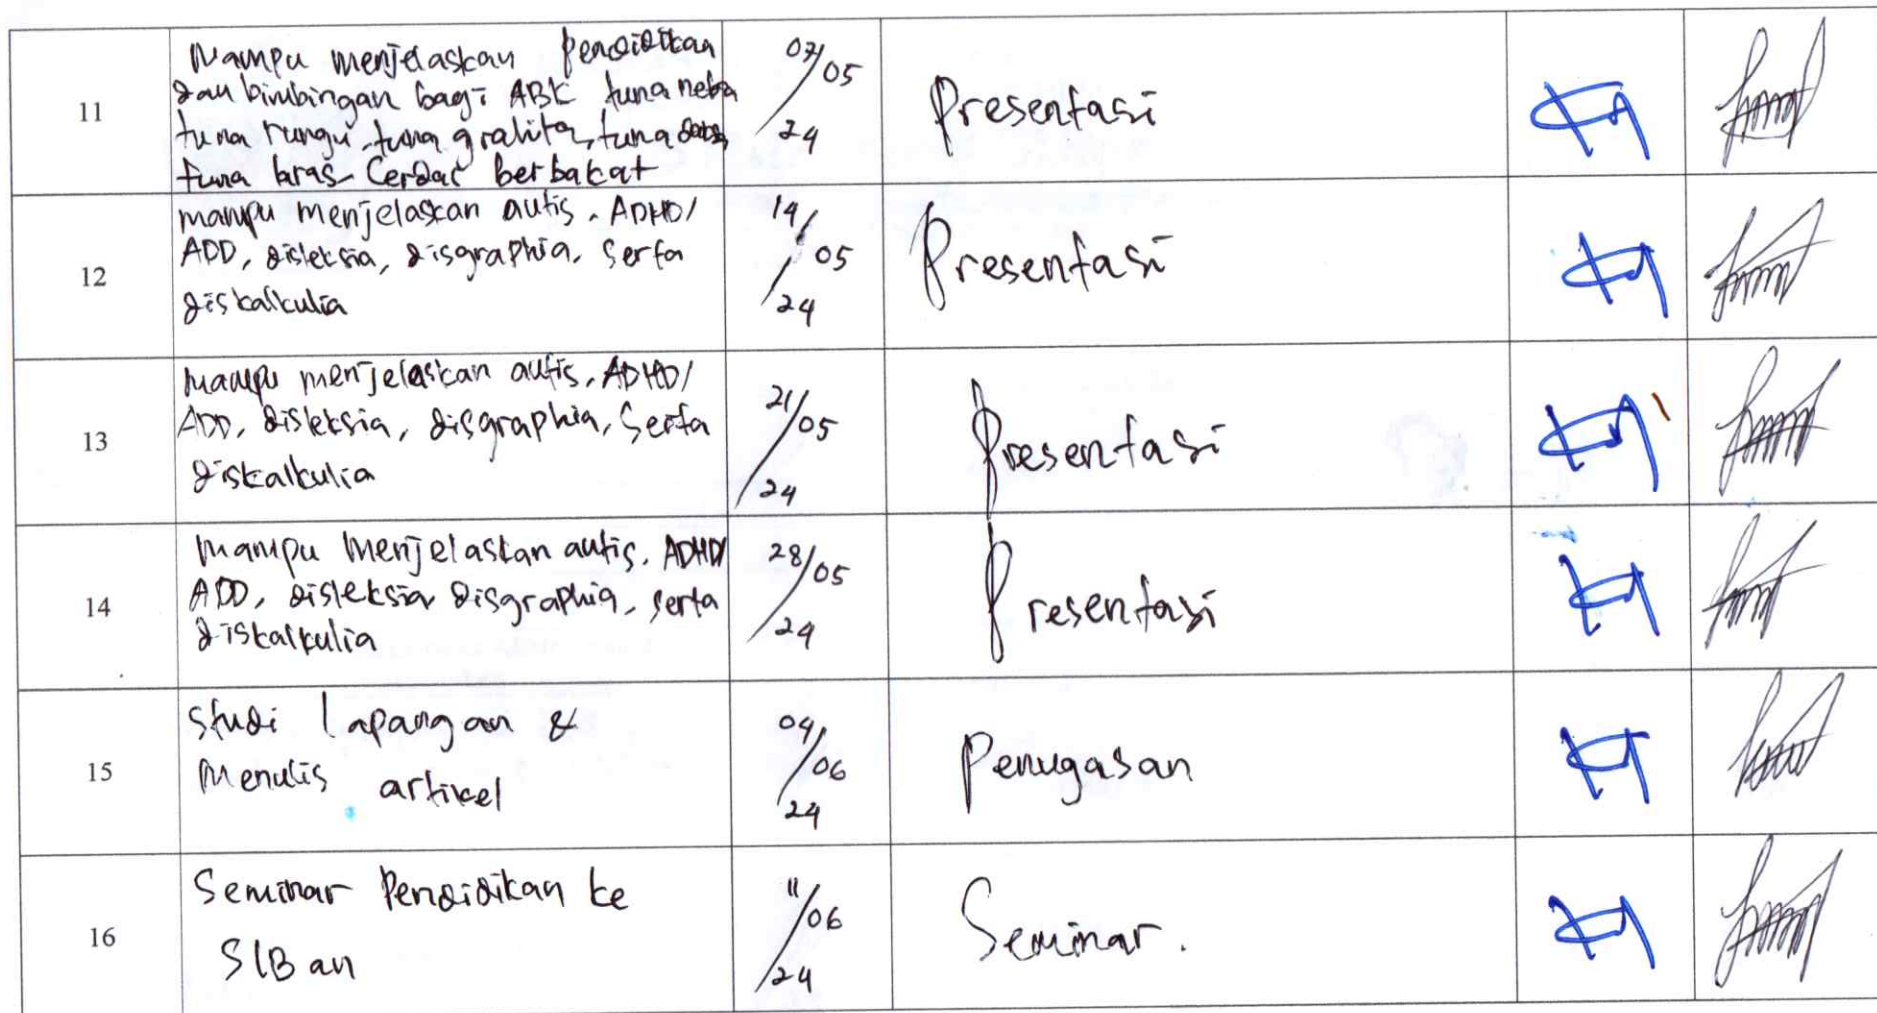 11
Mampu menjelaskan pendidikan
dan bimbingan bagi ABK tuna netra
tuna rungu, tuna grahita, tuna
tuna laras Cerdas berbakat
07/05/24
Presentasi
12
mampu menjelaskan autis, ADHD/
ADD, disleksia, disgraphia, serta
diskalkulia
14/05/24
Presentasi
13
mampu menjelaskan autis, ADHD/
ADD, disleksia, disgraphia, serta
diskalkulia
21/05/24
Presentasi
14
mampu menjelaskan autis, ADHD/
ADD, disleksia disgraphia, serta
diskalkulia
28/05/24
Presentasi
15
Studi lapangan &
Menulis artikel
04/06/24
Penugasan
16
Seminar Pendidikan ke
SLB an
11/06/24
Seminar.